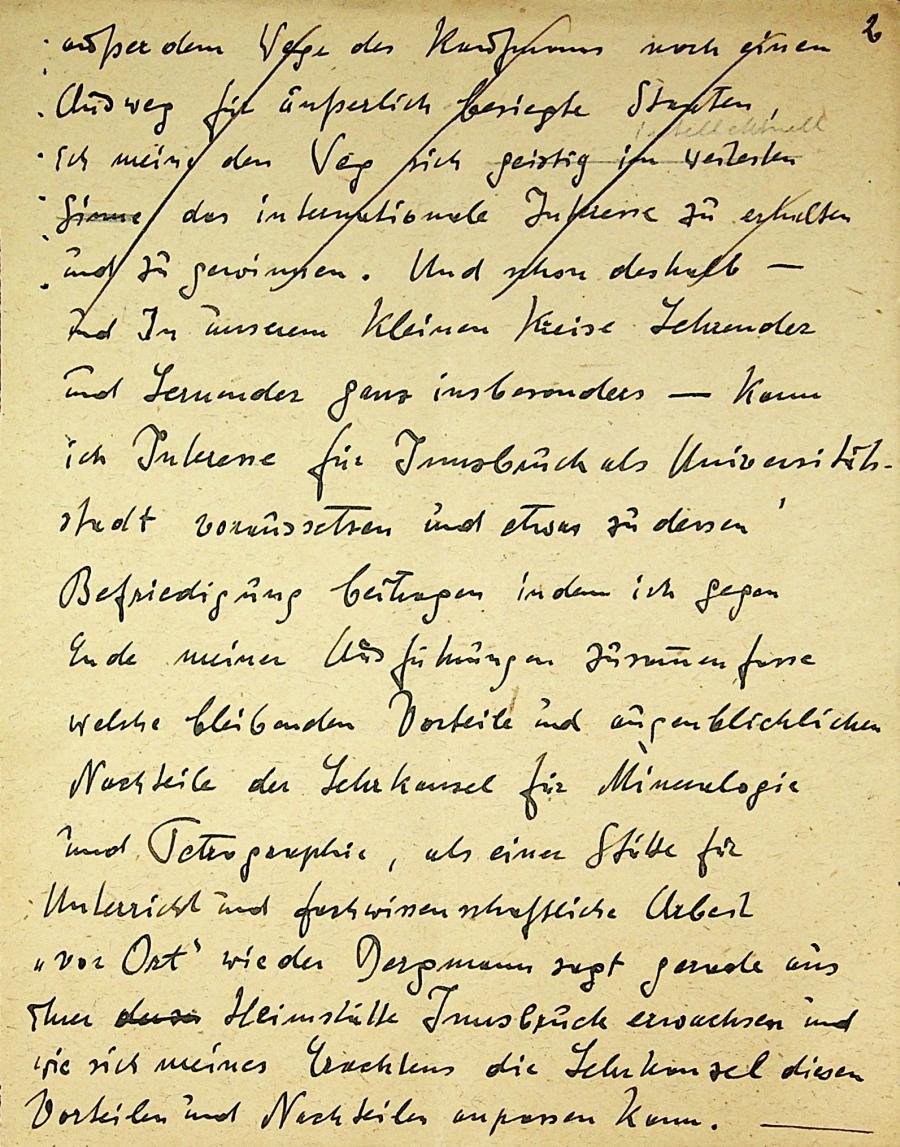 2
außer dem Wege des Kaufmanns noch einen
Ausweg für äußerlich besiegte Staaten,
intellektuell
ich meine den Weg sich geistig im weitesten
Sinne das internationale Interesse zu erhalten
und zu gewinnen. Und schon deshalb —
und In unserem kleinen Kreise Lehrender
und Lernender ganz insbesonders — kann
ich Interesse für Innsbruck als Universitäts-
stadt voraussetzen und etwas zu dessen
Befriedigung beitragen indem ich gegen
Ende meiner Ausführungen zusammenfasse
welche bleibenden Vorteile und augenblicklichen
Nachteile der Lehrkanzel für Mineralogie
und Petrographie, als einer Stätte für
Unterricht und fachwissenschaftliche Arbeit
„vor Ort“ wie der Bergmann sagt gerade aus
ihrer Heimstätte Innsbruck erwachsen und
wie sich meines Erachtens die Lehrkanzel diesen
Vorteilen und Nachteilen anpassen kann. —